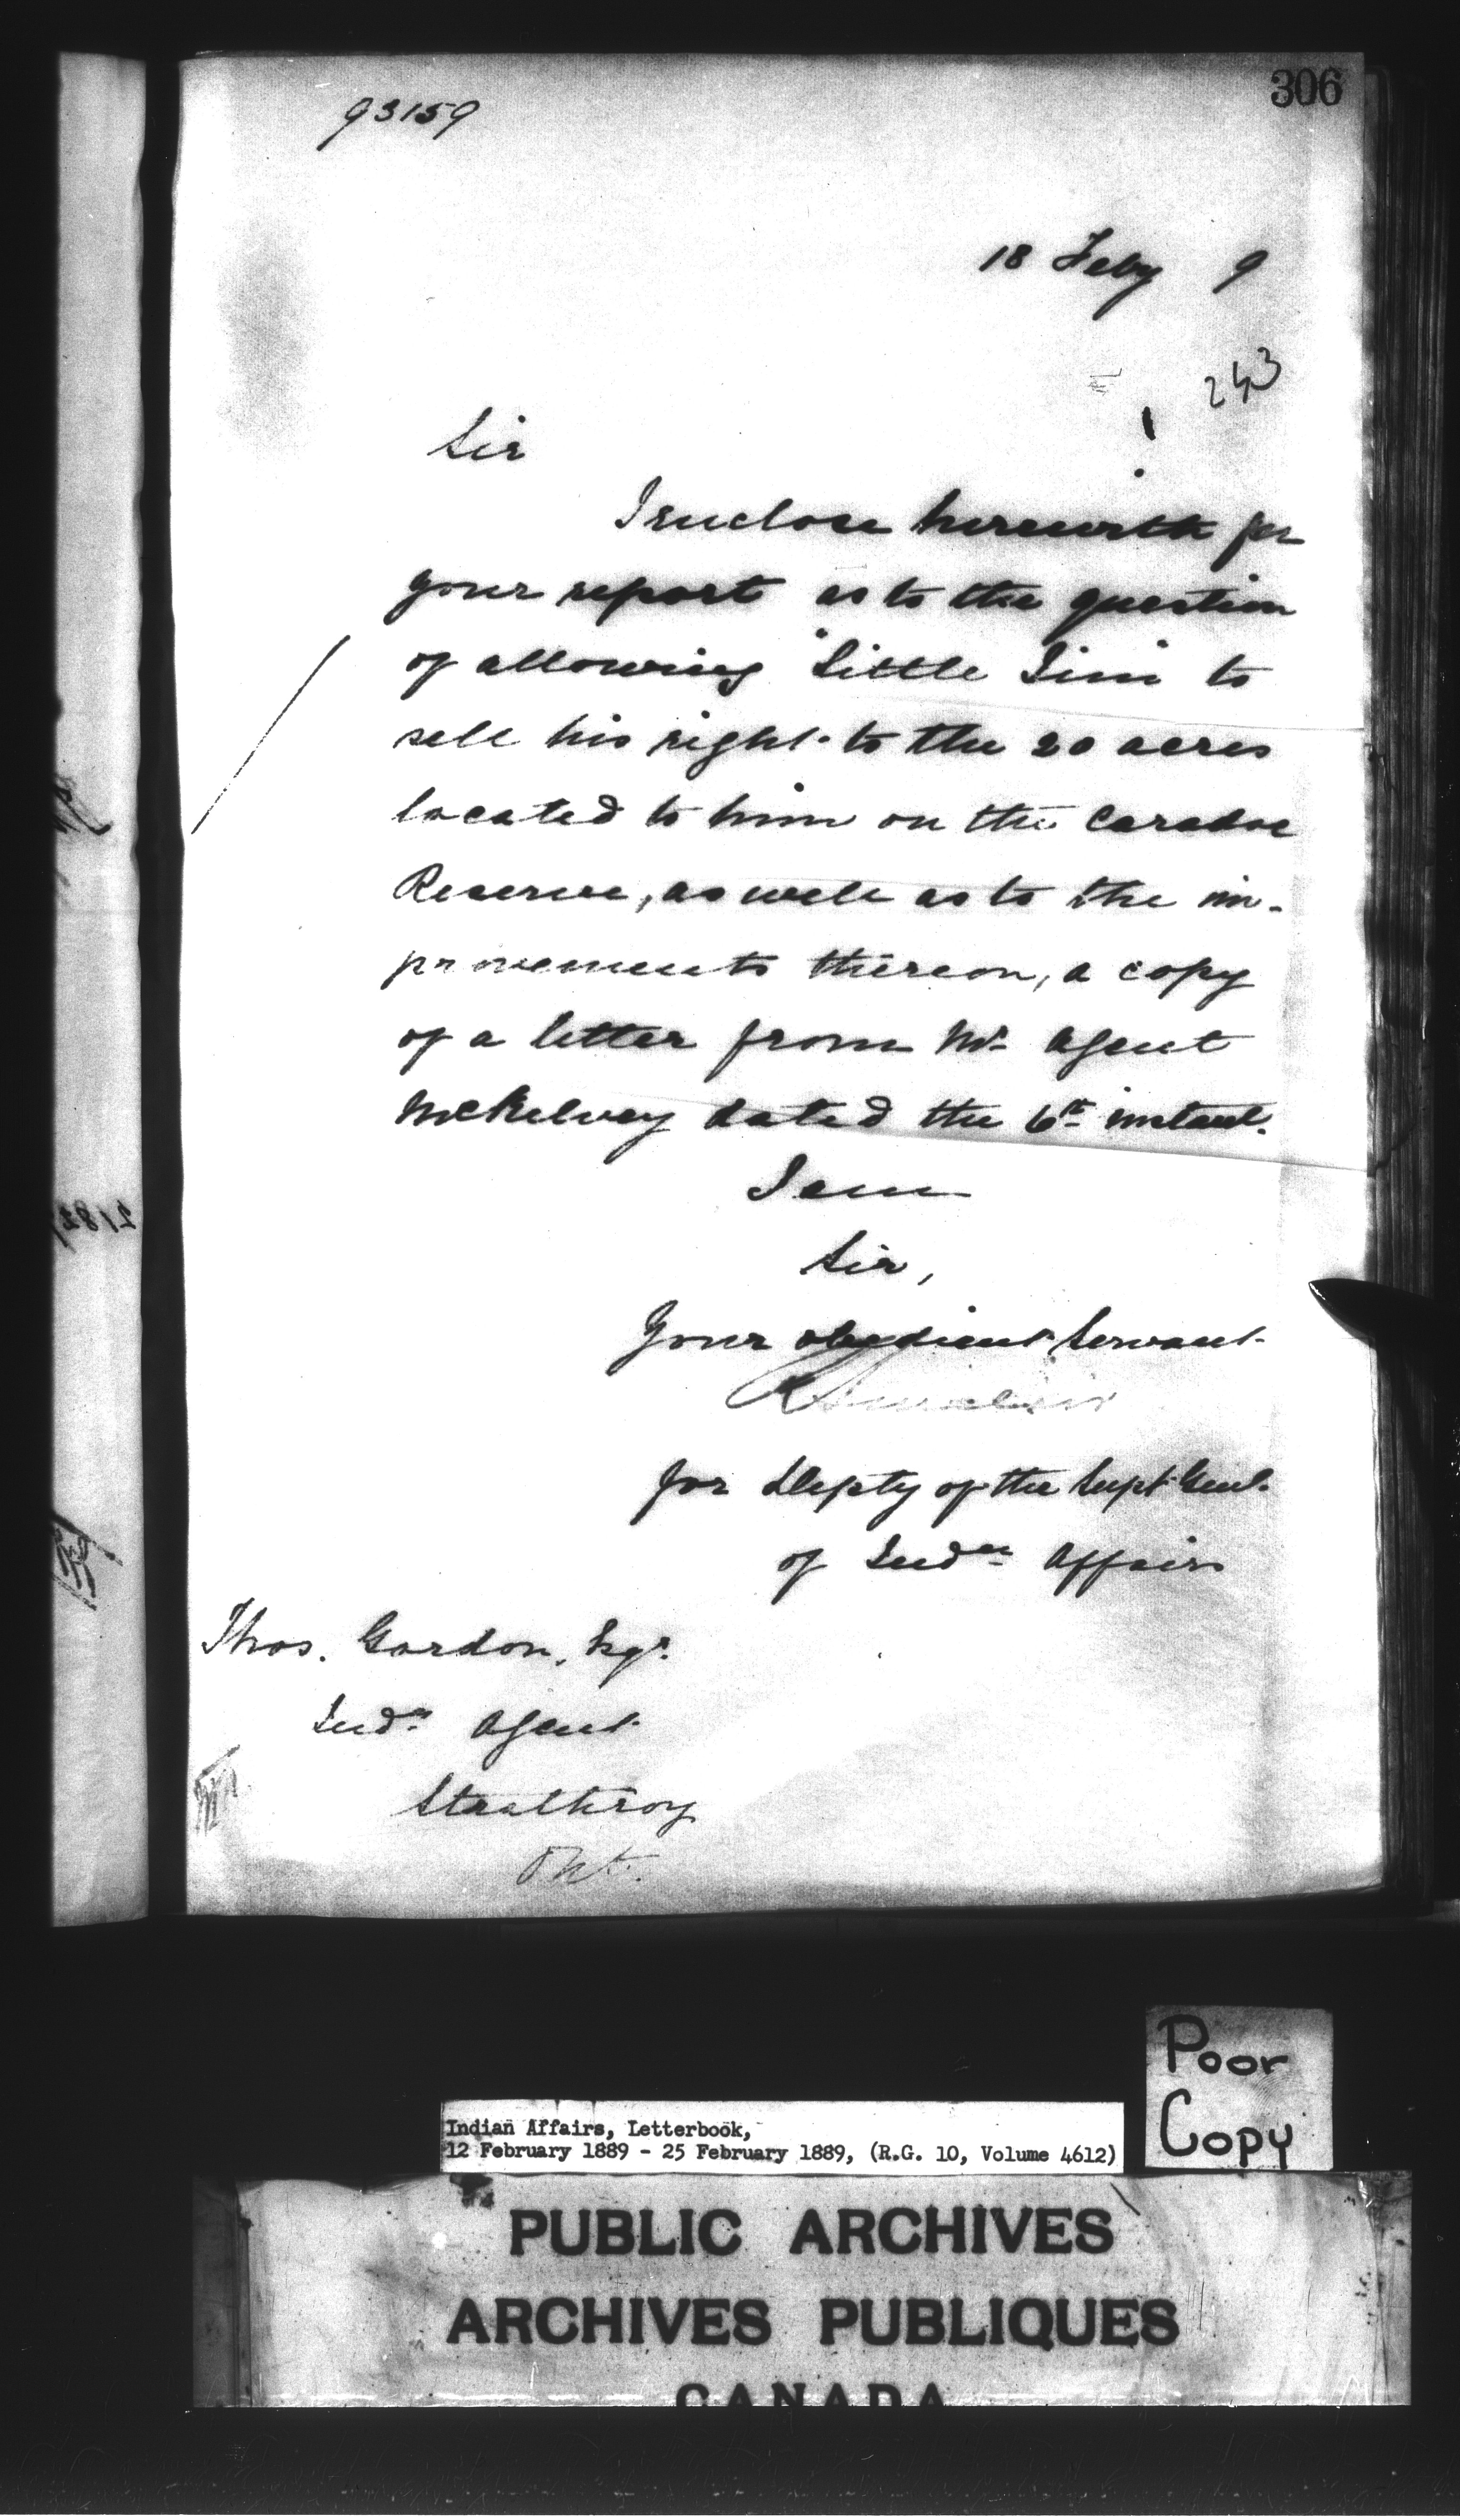 306
93159
18 Feby 9
243
Sir
I enclose herewith for
your report as to the question
of allowing "Little Jim" to
sell his right to the 20 acres
located to him on the Caradoc
Reserve, as well as to the im-
provements thereon, a copy
of a letter from Mr. Agent
McKelvey dated the 6th instant.
I am
Sir,
Your obedient Servant
R Sinclair
for Depty of the Supt. Genl.
of Indn Affairs
Thos. Gordon, Esqr.
Indn Agent
Strathroy
Ont.
Poor
Copy
Indian Affairs, Letterbook,
12 February 1889 - 25 February 1889, (R.G. 10, Volume 4612)
PUBLIC ARCHIVES
ARCHIVES PUBLIQUES
CANADA